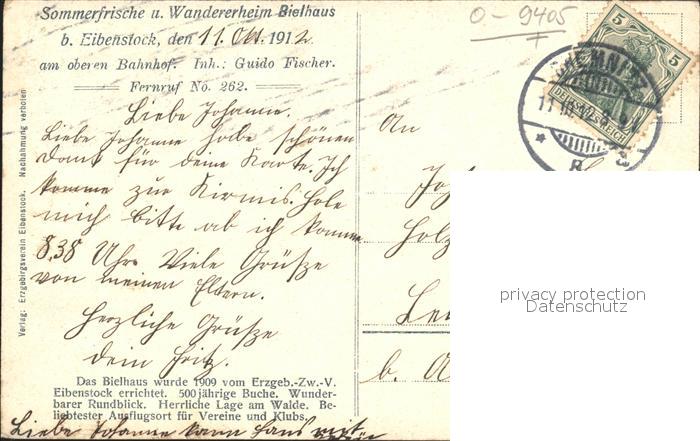 Sommerfrische u. Wandererheim Bielhaus
b. Eibenstock, den 11. Okt. 1912
am oberen Bahnhof. Inh.: Guido Fischer.
Fernruf No. 262.
Liebe Johanne.
Liebe Johanne habe schönen
Dank für deine Karte. Ich
komme zur Kirmis. Hole
mich bitte ab ich komme
8,38 Uhr. Viele Grüße
von meinen Eltern.
Herzliche Grüße
dein Fritz.
Das Bielhaus wurde 1909 vom Erzgeb.-Zw.-V.
Eibenstock errichtet. 500jährige Buche. Wunder-
barer Rundblick. Herrliche Lage am Walde. Be-
liebtester Ausflugsort für Vereine und Klubs.
Liebe Johanne kann Hans mit
Verlag: Erzgebirgsverein Eibenstock. Nachahmung verboten
0-9405
5 5
DEUTSCHES REICH
CHEMNITZ
11.10.12
An
b.
privacy protection
Datenschutz